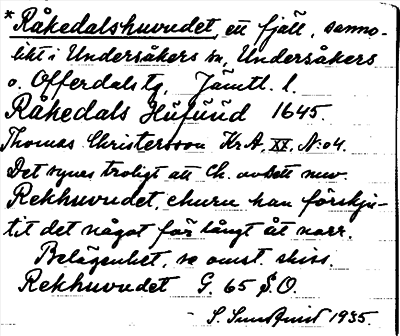 * Råkedalshuvudet, ett fjäll, sanno-
likt i Undersåkers sn, Undersåkers
o. Offerdals tg, Jämtl. l.
Råkedals Hufuud 1645.
Thomas Christersson KrA, XX, N:o 4.
Det synes troligt att Ch. avsett nuv.
Rekhuvudet, churu han förskju-
tit det något för långt åt norr.
Belägenhet, se omst. skiss.
Rekhuvudet G. 65 S.O.
S. Sundquist 1935.